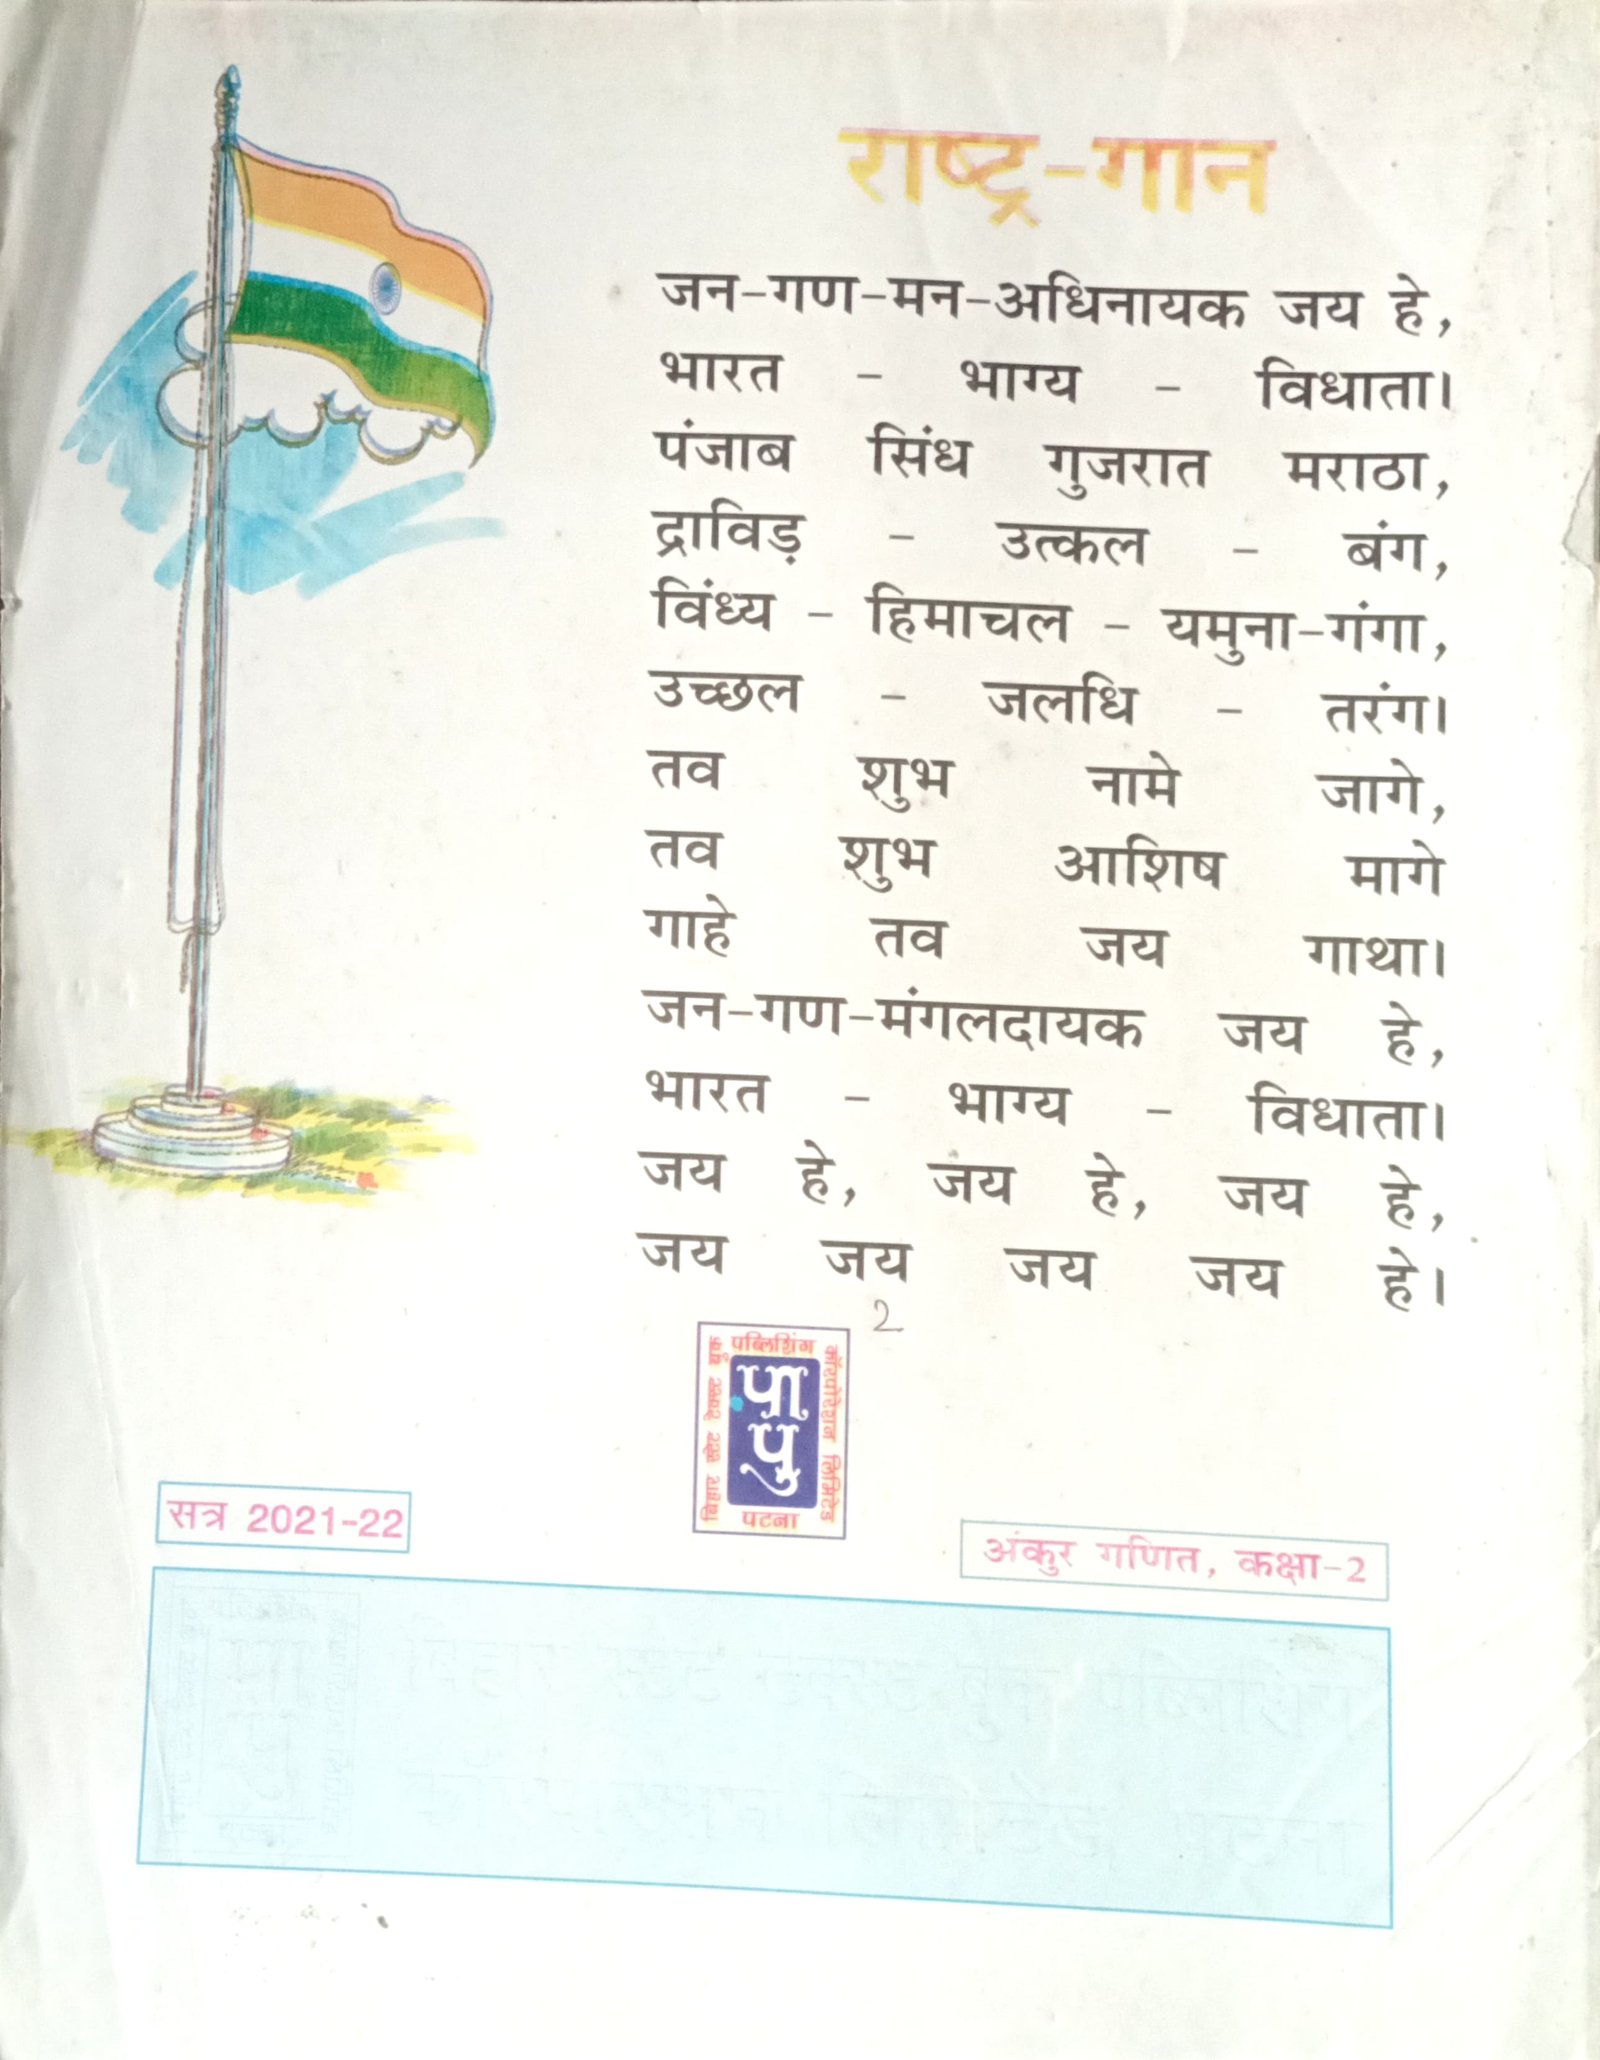 राष्ट्र-गान
जन-गण-मन-अधिनायक जय हे,
भारत - भाग्य - विधाता।
पंजाब सिंध गुजरात मराठा,
द्राविड़ - उत्कल - बंग,
विंध्य - हिमाचल - यमुना-गंगा,
उच्छल - जलधि - तरंग।
तव शुभ नामे जागे,
तव शुभ आशिष मागे
गाहे तव जय गाथा।
जन-गण-मंगलदायक जय हे,
भारत - भाग्य - विधाता।
जय हे, जय हे, जय हे,
जय जय जय जय हे।
2
बिहार स्टेट टेक्स्ट बुक
पब्लिशिंग
कॉरपोरेशन लिमिटेड
पा
पु
पटना
सत्र 2021-22
अंकुर गणित, कक्षा-2